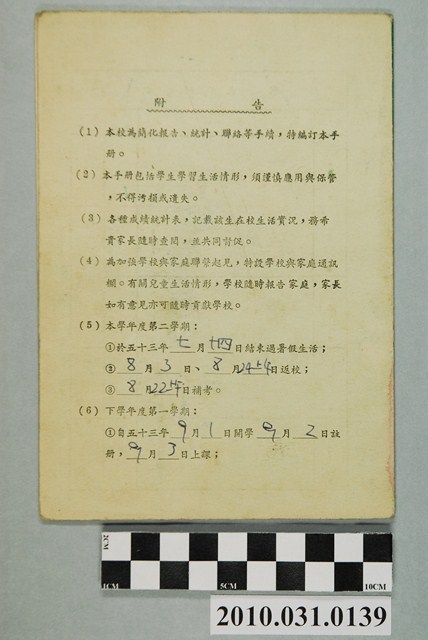 附 告
(1) 本校為簡化報告、統計、聯絡等手續，特編訂本手
冊。
(2) 本手册包括學生學習生活情形，須謹慎應用與保管
，不得污損或遺失。
(3) 各種成績統計表，記載該生在校生活實況，務希
貴家長隨時查閱，並共同督促。
(4) 為加強學校與家庭聯繫起見，特設學校與家庭通訊
欄。有關兒童生活情形，學校隨時報告家庭，家長
如有意見亦可隨時貢獻學校。
(5) 本學年度第二學期：
①於五十三年 七 月 廿四 日結束過暑假生活；
② 8 月 3 日、 8 月 24 日返校；
③ 8 月 22 日補考。
(6) 下學年度第一學期：
①自五十三年 9 月 1 日開學 9 月 2 日註
册， 9 月 3 日上課；
2CM
1CM 5CM 10CM
2010.031.0139